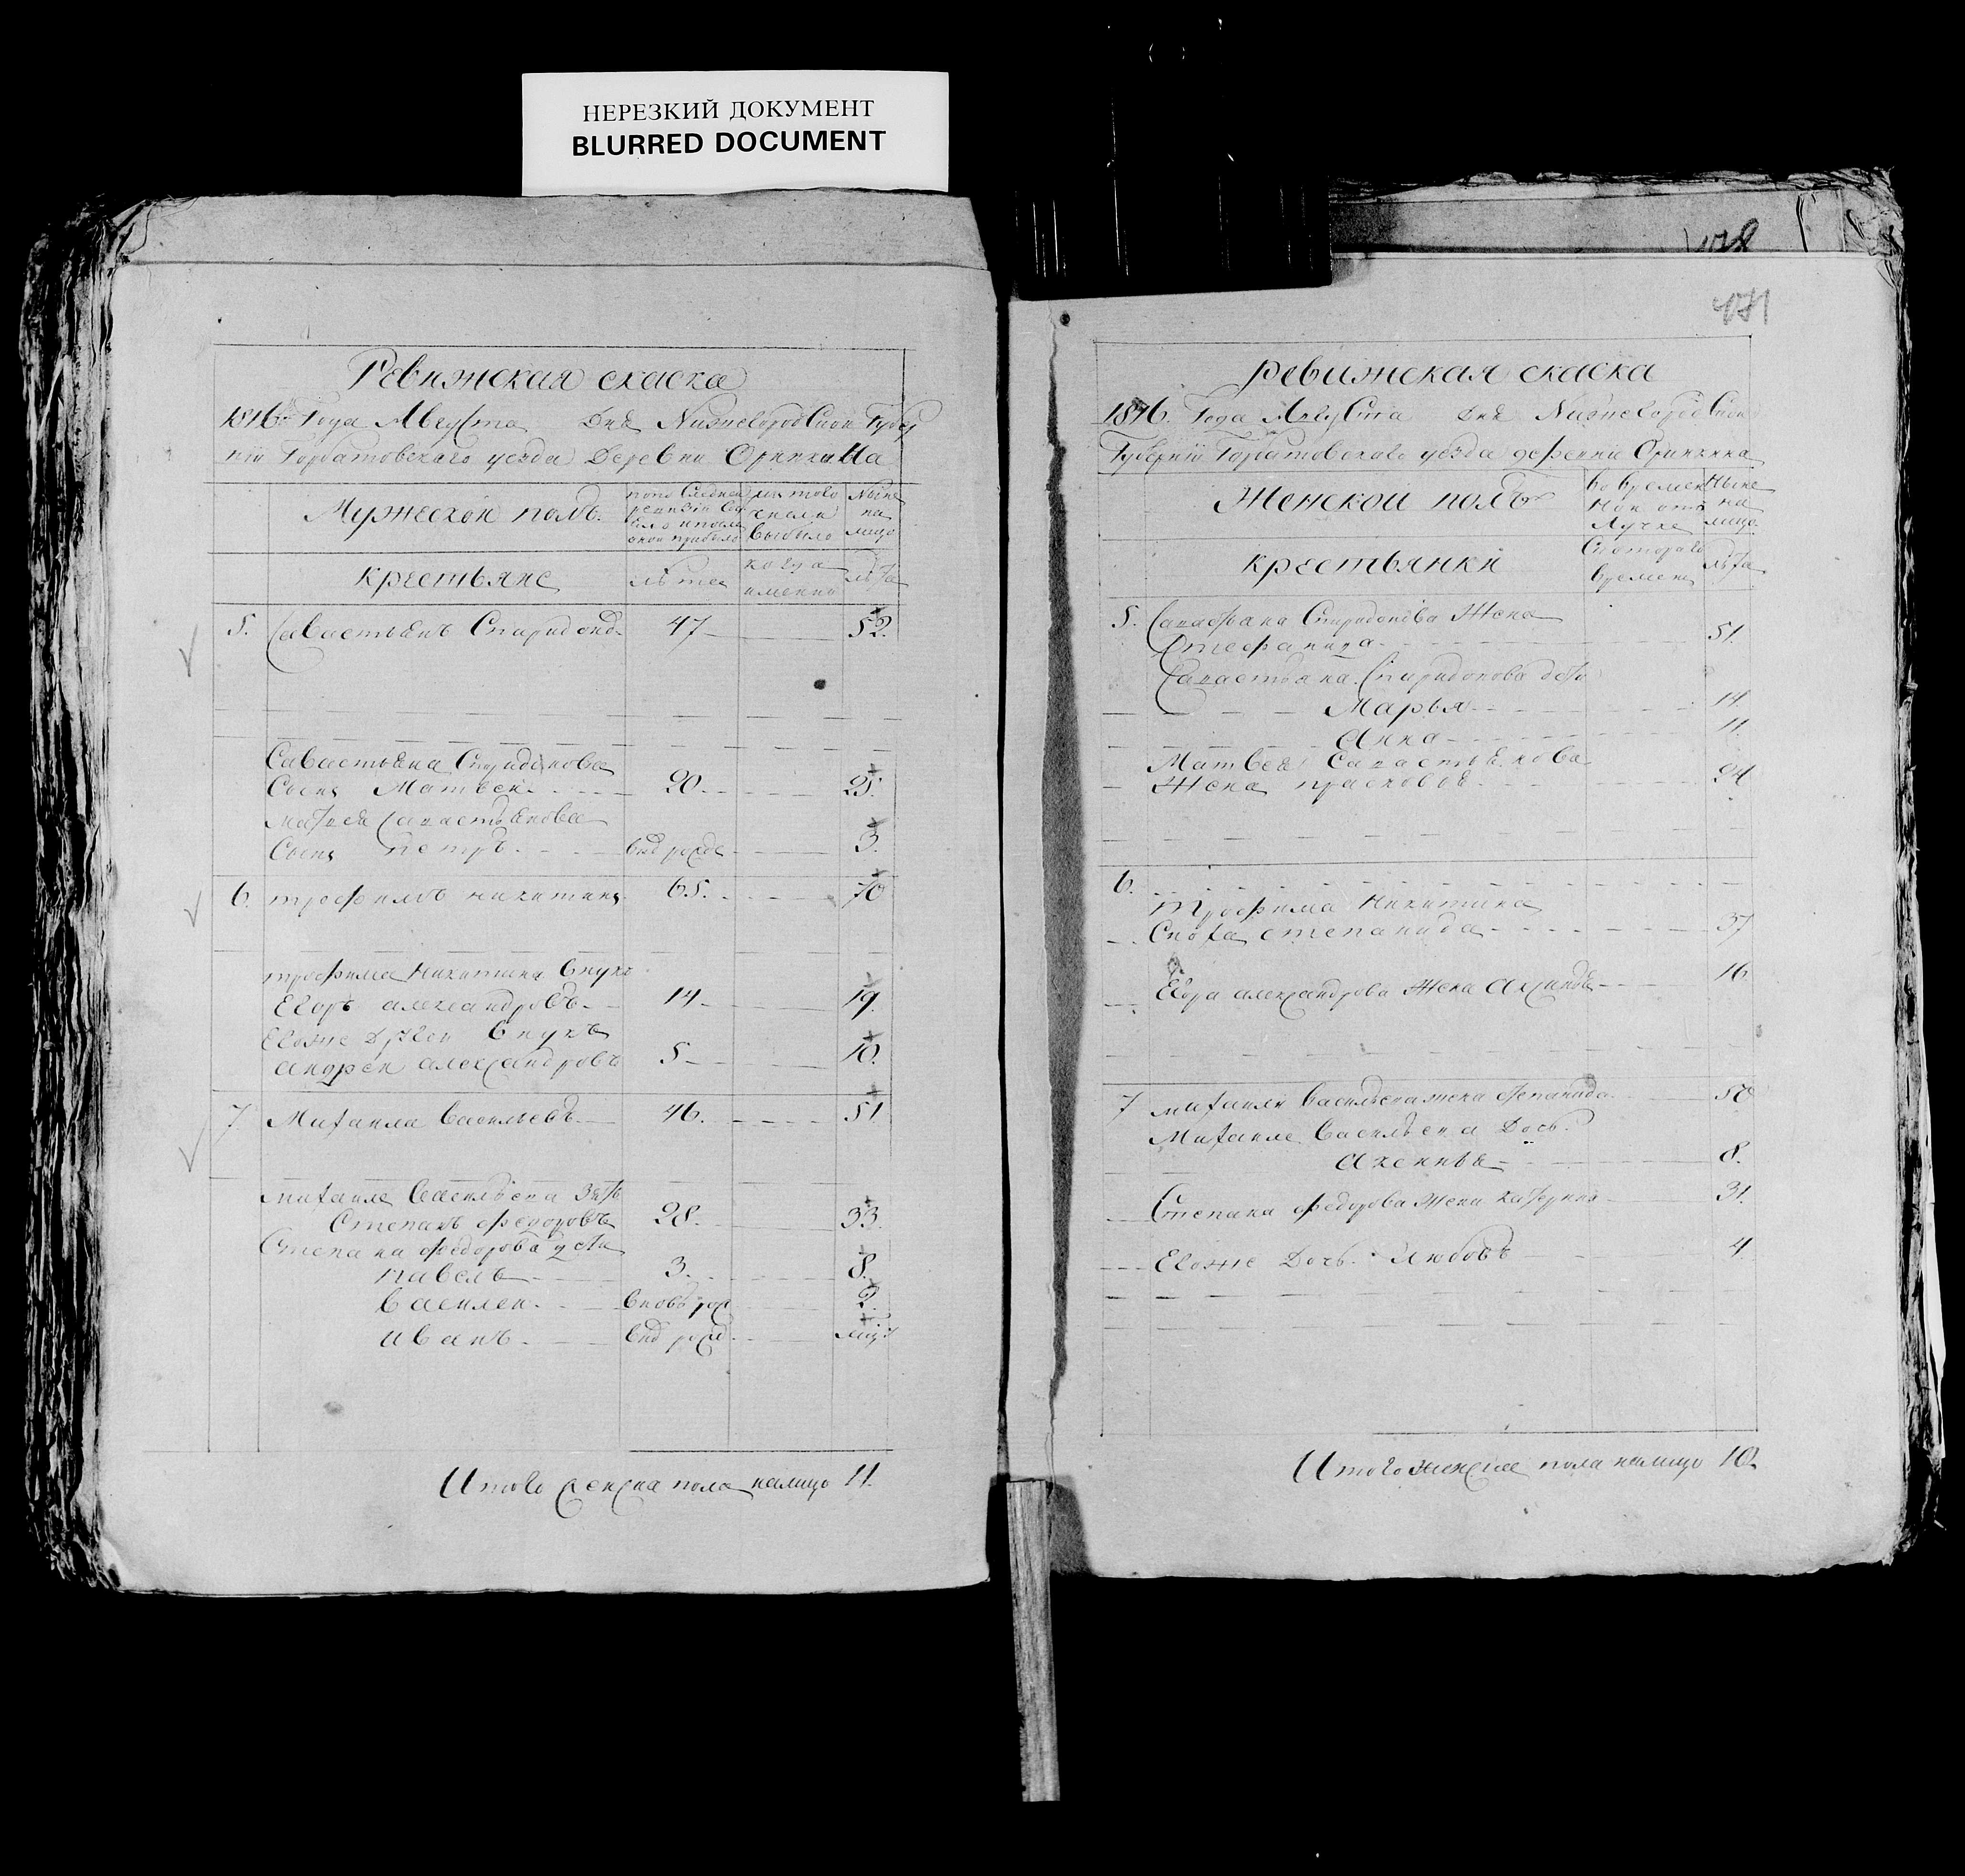 НЕРЕЗКИЙ ДОКУМЕНТ
BLURRED DOCUMENT
Ревижская скаска
1816го Года Августа Дня Нижегородской Губер
нiи Горбатовскаго уезда Деревни Оринкина
Мужескои полъ.
по последней ревизiи состояло и после оной прибыло
изъ того числа выбыло
Ныне на лицо
крестьяне
лета
когда именно
лѣта
5. Савастьянъ Спиридоно. 47 52.
Савастьяна Спиридонова
Сынъ Матвеи 20 25.
Матвея Савастьянова
Сынъ петръ внѣ рожде 3.
6. трофимъ никитинъ 65. 70
трофима Никитина внукъ
Егоръ александровъ 14 19.
Егоже другои внукъ
андреи александровъ 5 10.
7 Михаила васильевъ 46. 51
михаиле васильева зять
Степанъ федоровъ 28. 33.
Степана федорова дети
павелъ 3. 8.
василеи. вновь рож 2.
иванъ. внѣ рожд
Итого мужска пола налицо 11.
478
471
ревижская скаска
1816. Года Августа дня Нижегородской
Губернiи Горбатовскаго уезда деревни Оринкина
Женскои полъ
во временной отлучке
Ныне на лицо
крестьянки
Скотораго времени
лѣта
5. Савастьяна Спиридонова Жена
Стефанида 51.
Савастьяна Спиридонова дети
Марья 14.
Анна 11.
Матвея Савастьянова
Жена прасковья 24
6.
Трофима Никитина
Сноха степанида 37
Егора александрова Жена Акулина 16
7 михаили васильева жена степанида 50
Михаиле Васильева Дочь.
Аксинья 8.
Степана федорова жена катерина 31.
Егоже Дочь. Любовь 4
Итого женска пола налицо 10.